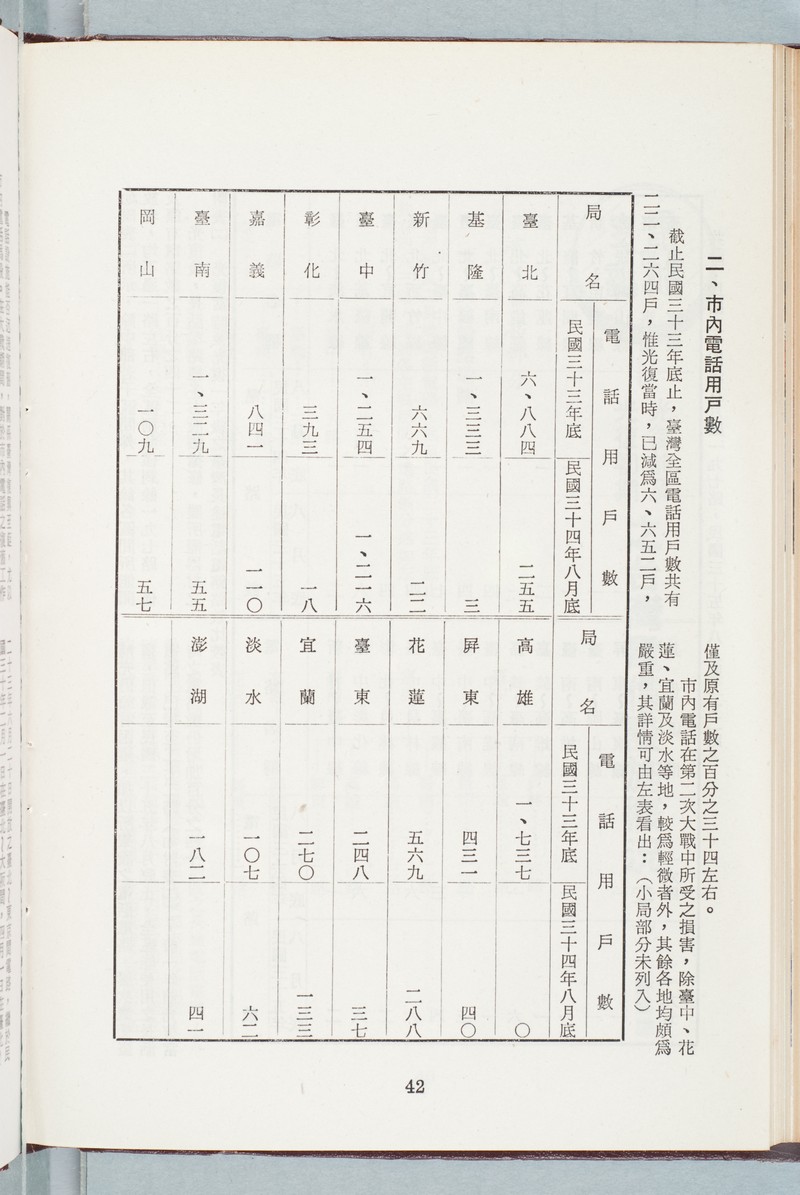 二、市內電話用戶數
截止民國三十三年底止，臺灣全區電話用戶數共有
二二、二六四戶，惟光復當時，已減爲六、六五二戶，
僅及原有戶數之百分之三十四左右。
市內電話在第二次大戰中所受之損害，除臺中、花
蓮、宜蘭及淡水等地，較爲輕微者外，其餘各地均頗爲
嚴重，其詳情可由左表看出：（小局部分未列入）
局名 電話用戶數 民國三十三年底 民國三十四年八月底
臺北 六、八八四 二五五
基隆 一、三三三 三
新竹 六六九 二二
臺中 一、二五四 一、二一六
彰化 三九三 一八
嘉義 八四一 一一〇
臺南 一、三二九 五五
岡山 一〇九 五七
局名 電話用戶數 民國三十三年底 民國三十四年八月底
高雄 一、七三七 〇
屛東 四三一 四〇
花蓮 五六九 二八八
臺東 二四八 三七
宜蘭 二七〇 一三三
淡水 一〇七 六二
澎湖 一八二 四一
42